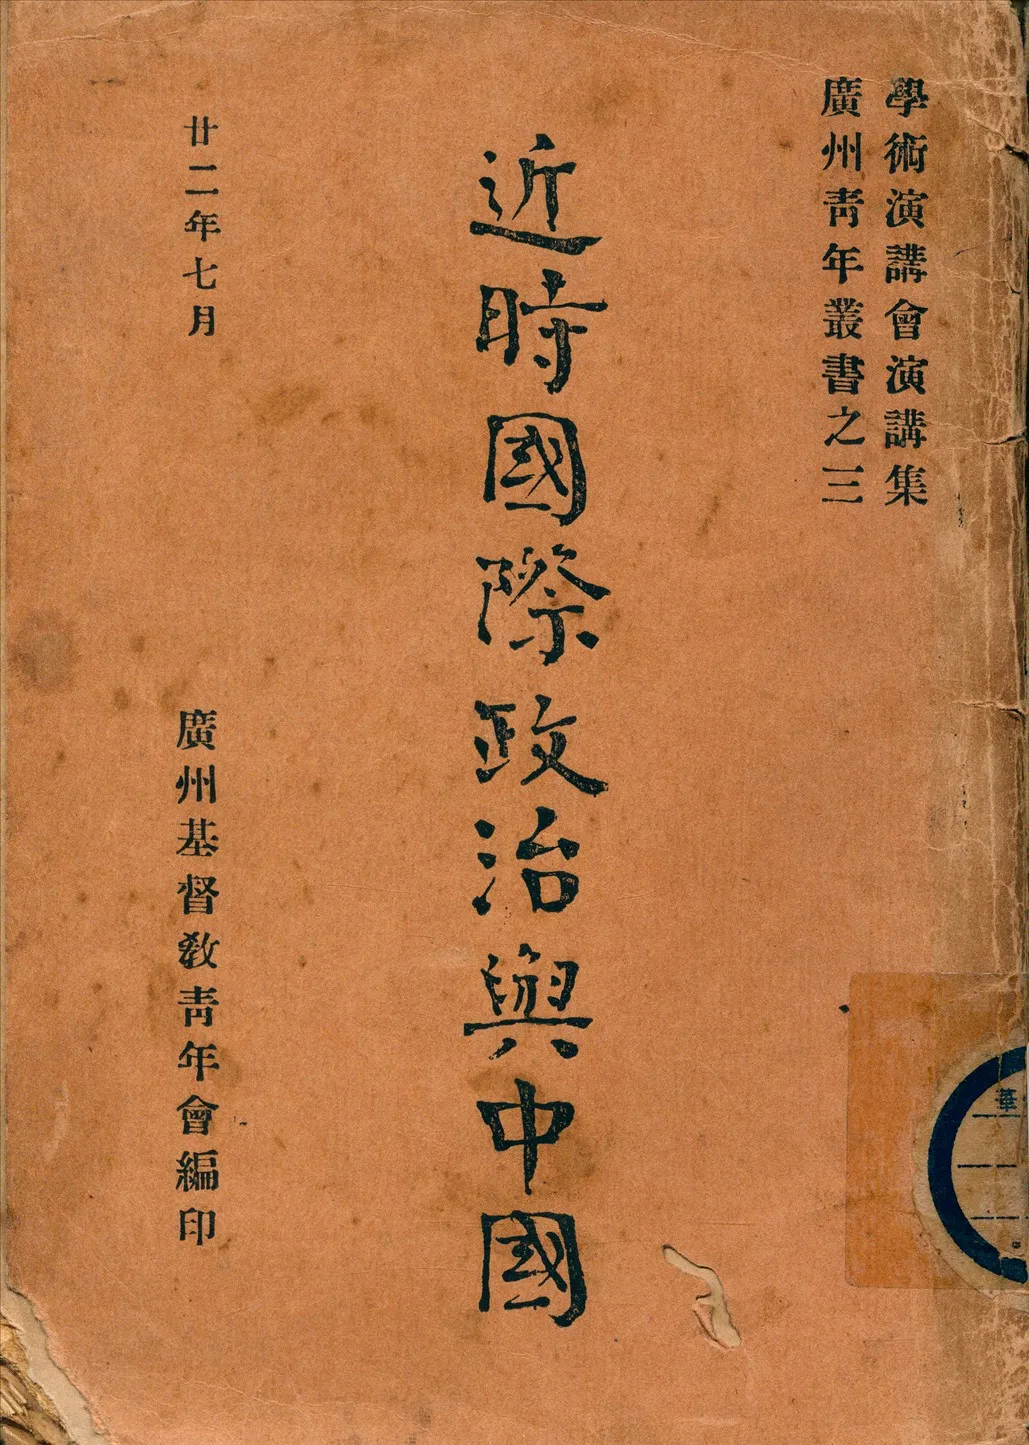 學術演講會演講集
廣州靑年叢書之三
近時國際政治與中國
廿二年七月
廣州基督敎靑年會編印
華